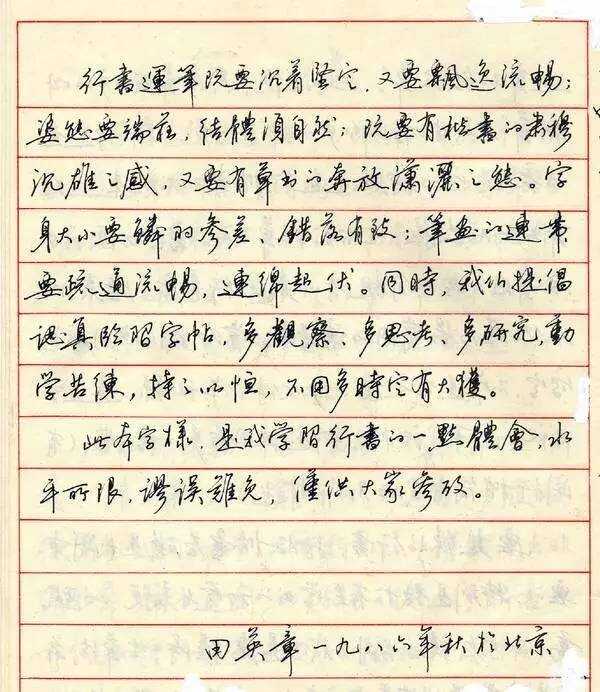 行書運筆既要沉着堅定，又要飄逸流暢；
姿態要端莊，結體須自然；既要有楷書的肅穆
沉雄之感，又要有草书的奔放潇灑之態。字
身大小要鳞的參差、錯落有致；筆画的連带
要疏通流暢，連綿起伏。同時，我们提倡
認真临習字帖，多觀察、多思考、多研究，勤
学苦練，持之以恒，不用多時定有大獲。
此本字樣，是我学習行書的一點體會，水
平所限，謬误難免，僅供大家參攷。
田英章一九八六年秋於北京